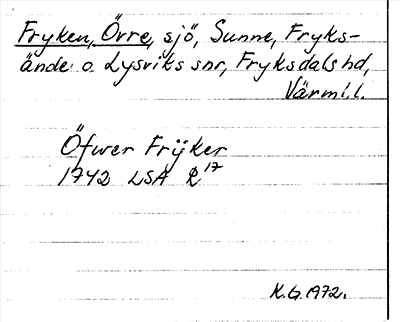 Fryken, Övre, sjö, Sunne, Fryks-
ände o. Lysviks snr, Fryksdals hd,
Värml.l.
Öfwer Frÿker
1742 LSA R17
K.G.1972.